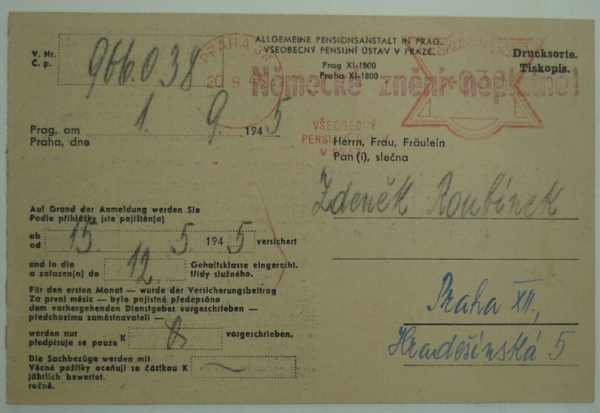 ALLGEMEINE PENSIONSANSTALT IN PRAG.
VŠEOBECNÝ PENSIJNÍ ÚSTAV V PRAZE.
Prag XI-1800
Praha XI-1800
Drucksorte.
Tiskopis.
V. Nr.
Č. p.
966.038
PRAHA
20 9 45
Německé znění neplatné!
VŠEOBECNÝ
Prag, am
Praha, dne
1. 9. 1945
Herrn, Frau, Fräulein
Pan (i), slečna
Zdeněk Roubínek
Praha XII,
Hradešínská 5
Auf Grund der Anmeldung werden Sie
Podle přihlášky jste pojištěn(a)
ab
od
15. 5. 1945 versichert
und in die
a zařazen(a) do
12.
Gehaltsklasse eingereiht.
třídy služného.
Für den ersten Monat — wurde der Versicherungsbeitrag
Za první měsíc — bylo pojistné předepsáno
dem vorhergehenden Dienstgeber vorgeschrieben —
předchozímu zaměstnavateli —
werden nur
předpisuje se pouze K
vorgeschrieben.
Die Sachbezüge werden mit
Věcné požitky oceňují se částkou K
jährlich bewertet.
ročně.